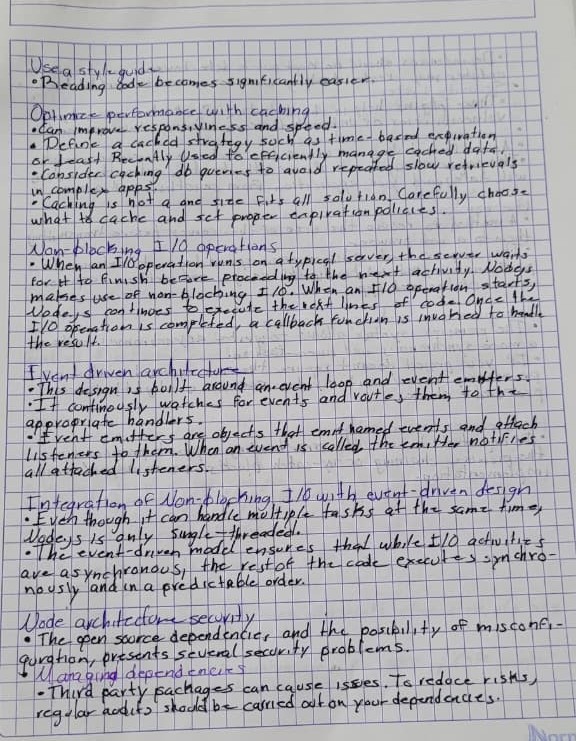 Use a style guide
• Reading code becomes significantly easier.
Optimize performance with caching
• Can improve responsiviness and speed.
• Define a cached strategy such as time-based expiration
or Least Recently Used to efficiently manage cached data.
• Consider caching db queries to avoid repeated slow retrievals
in complex apps.
• Caching is not a one size fits all solution. Carefully choose
what to cache and set proper expiration policies.
Non-blocking I/O operations
• When an I/O operation runs on a typical server, the server waits
for it to finish before proceeding to the next activity. Nodejs
makes use of non-blocking I/O. When an I/O operation starts,
Nodejs continues to execute the next lines of code. Once the
I/O operation is completed, a callback function is invoked to handle
the result.
Event driven architecture
• This design is built around an event loop and event emitters.
• It continously watches for events and routes them to the
appropriate handlers.
• Event emitters are objects that emit named events and attach
listeners to them. When an event is called, the emitter notifies
all attached listeners.
Integration of Non-blocking I/O with event-driven design
• Even though it can handle multiple tasks at the same time,
Nodejs is only single-threaded.
• The event-driven model ensures that while I/O activities
are asynchronous, the rest of the code executes synchro-
nously and in a predictable order.
Node architecture security
• The open source dependencies and the posibility of misconfi-
guration, presents several security problems.
• Managing dependencies
• Third party packages can cause issues. To reduce risks,
regular audits should be carried out on your dependencies.
Norm